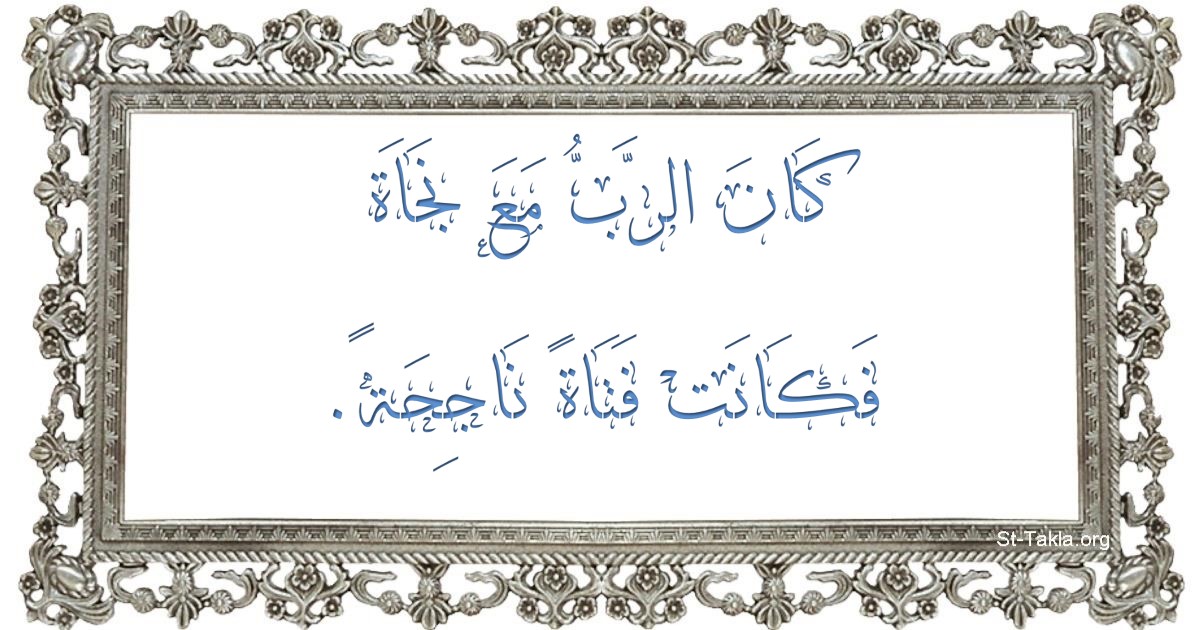 كَانَ الرَّبُّ مَعَ نَجَاة
فَكَانَت فَتَاةً نَاجِحَةً.
St-Takla.org